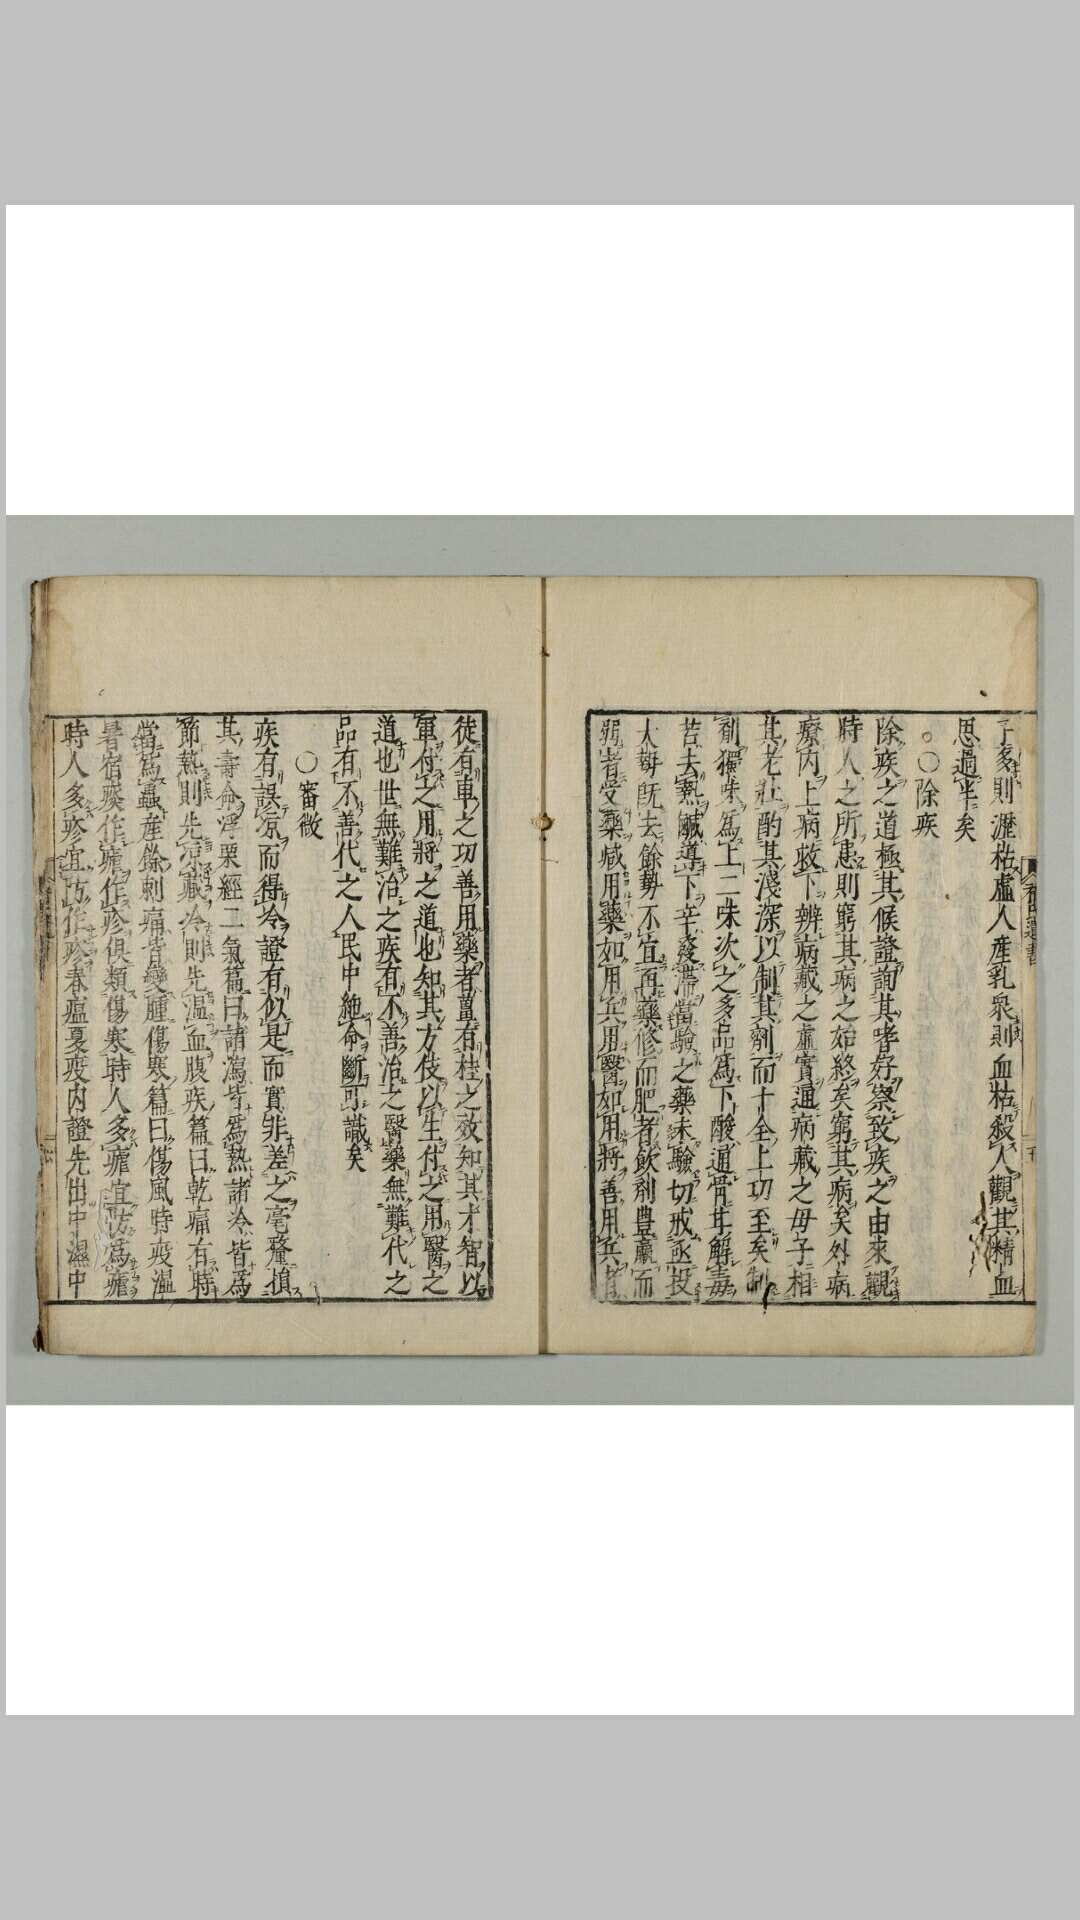 子多則瀝枯虛人產乳眾則血枯殺人觀其精血
思過半矣
○除疾
除疾之道極其候證詢其嗜好察致疾之由來觀
時人之所患則窮其病之始終矣窮其病矣外病
療內上病救下辨病藏之虛實通病藏之母子相
其老壯酌其淺深以制其劑而十全上功至矣制
劑獨味爲上二味次之多品爲下酸通骨甘解毒
苦去熱鹹導下辛發滯當驗之藥未驗切戒亟投
大勢既去餘勢不宜再藥修而肥者飲劑豊羸而
弱者受藥减用藥如用兵用醫如用將善用兵者
徒有車之功善用藥者薑有桂之效知其才智以
軍付之用將之道也知其方伎以生付之用醫之
道也世無難治之疾有不善治之醫藥無難代之
品有不善代之人民中絶命斷可識矣
○審微
疾有誤凉而得冷證有似是而實非差之亳釐損
其壽命浮栗經二氣篇曰諸瀉皆爲熱諸冷皆爲
節熱則先凉藏冷則先温血腹疾篇曰乾痛有時
當爲蟲產餘刺痛皆變腫傷寒篇曰傷風時疫温
暑宿痰作瘧作疹俱類傷寒時人多瘧宜防爲瘧
時人多疹宜防作疹春瘟夏疫內證先出中濕中